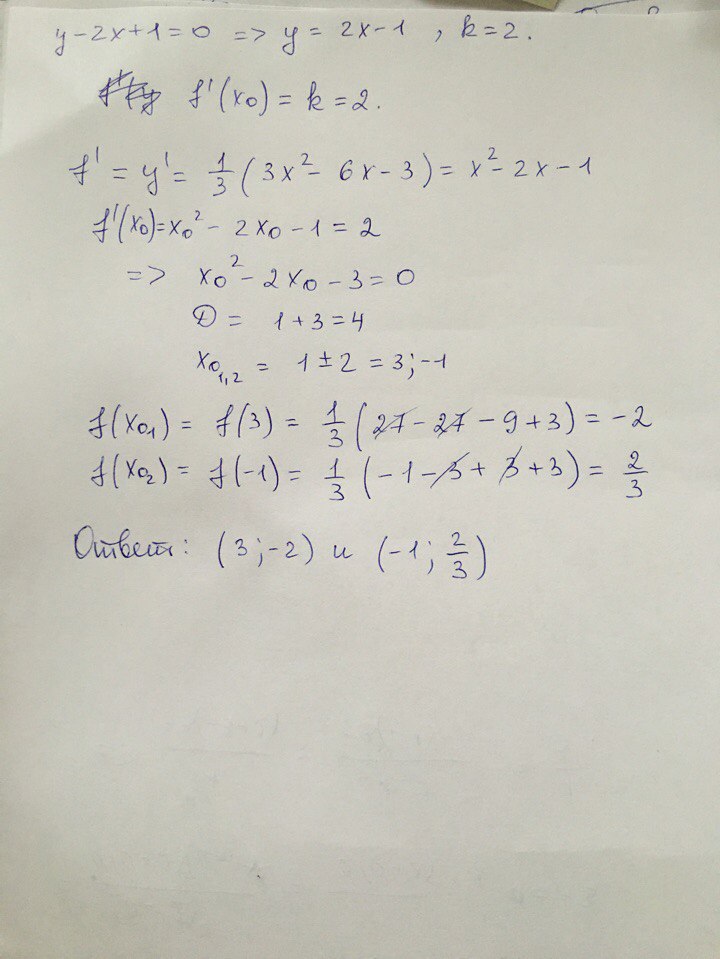 y - 2x + 1 = 0 => y = 2x - 1 , k = 2.
f'(x₀) = k = 2.
f' = y' = 1/3 (3x² - 6x - 3) = x² - 2x - 1
f'(x₀) = x₀² - 2x₀ - 1 = 2
=> x₀² - 2x₀ - 3 = 0
D = 1 + 3 = 4
x₀₁,₂ = 1 ± 2 = 3; -1
f(x₀₁) = f(3) = 1/3 (27 - 27 - 9 + 3) = -2
f(x₀₂) = f(-1) = 1/3 (-1 - 3 + 3 + 3) = 2/3
Ответ: (3; -2) и (-1; 2/3)